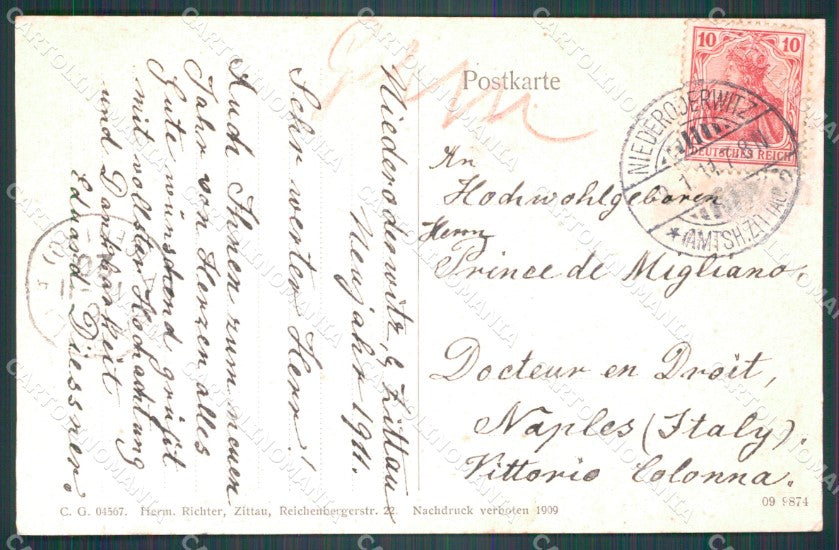 Niederoderwitz, b Zittau
Neujahr 1911.
Sehr werter Herr!
Auch Ihnen zum neuen
Jahr von Herzen alles
Gute wünschend grüßt
mit vollster Hochachtung
und Dankbarkeit
Eduard Diessner.
Postkarte
10 10
DEUTSCHES REICH
NIEDERODERWITZ
1.11.7-8.N.
*(AMTSH.ZITTAU)
An
Hochwohlgeboren
Herrn
Prince de Migliano.
Docteur en Droit,
Naples (Italy).
Vittorio Colonna.
C. G. 04567. Herm. Richter, Zittau, Reichenbergerstr. 22. Nachdruck verboten 1909
09 9874
CARTOLINOMANIA